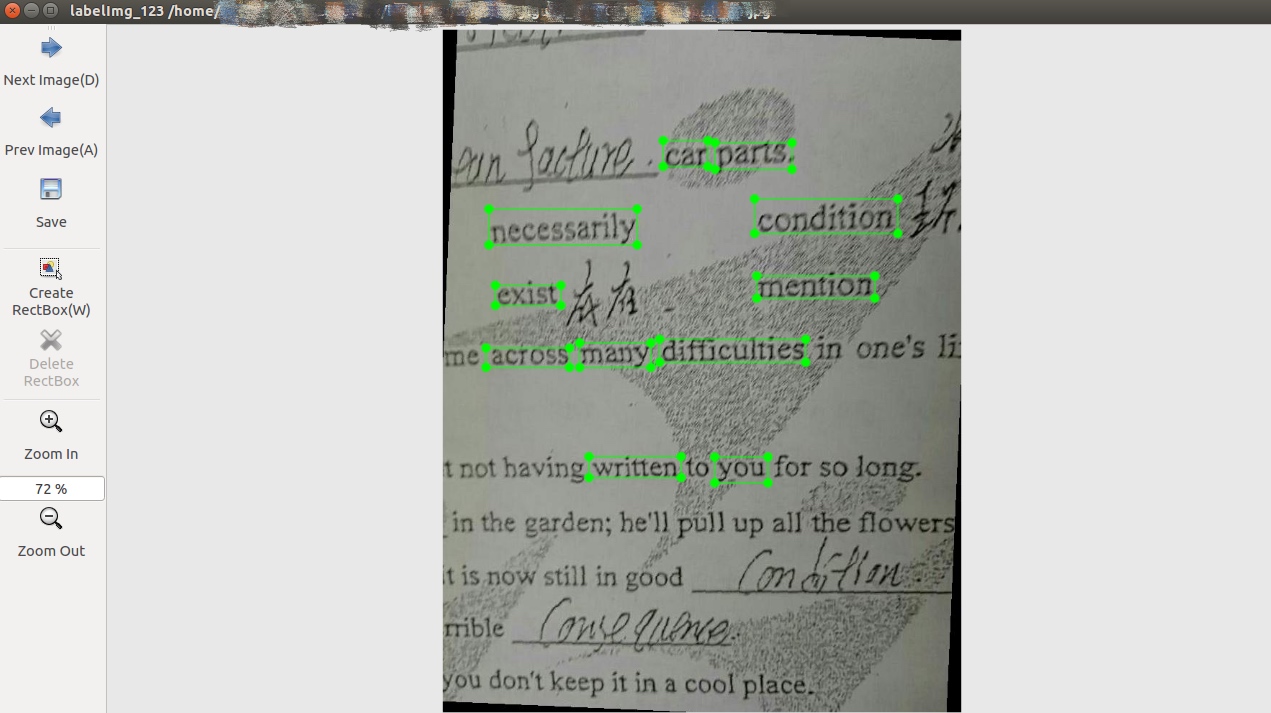 labelImg_123 /home/
Next Image(D)
Prev Image(A)
Save
Create
RectBox(W)
Delete
RectBox
Zoom In
72 %
Zoom Out
facture. car parts.
necessarily condition
exist mention
me across many difficulties in one's li
t not having written to you for so long.
in the garden; he'll pull up all the flowers
it is now still in good Condition.
rrible Consequence.
you don't keep it in a cool place.